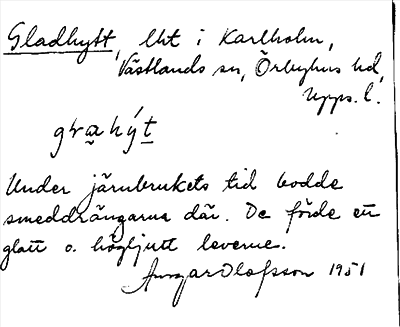 Gladhytt, lht i Karlholm,
Västlands sn, Örbyhus hd,
Upps. l.
Under järnbrukets tid bodde
smeddrängarna där. De förde ett
glatt o. högljutt leverne.
Ansgar Olofsson 1951